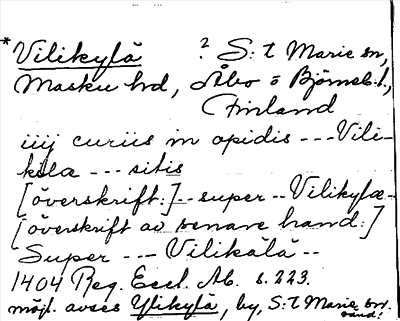 *Vilikylä ? S:t Marie sn,
Masku hd, Åbo o Björneb. l.,
Finland
iiij curiis in opidis --- Vili-
kola --- sitis
[överskrift:] -- super -- Vilikylæ-
[överskrift av senare hand:]
Super --- Vilikälä --
1404 Reg. Eccl. Ab. s. 223.
möjl. avses Ylikylä, by, S:t Marie sn,